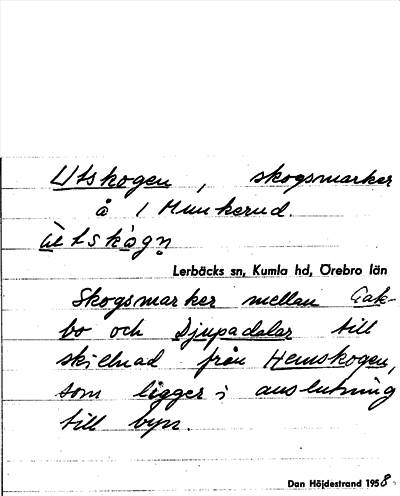 Utskogen, skogsmarker
å 1 Munkerud.
Lerbäcks sn, Kumla hd, Örebro län
Skogsmarker mellan
bo och Djupadalar till
skillnad från Hemskogen,
som ligger i anslutning
till byn.
Dan Höjdestrand 1958.